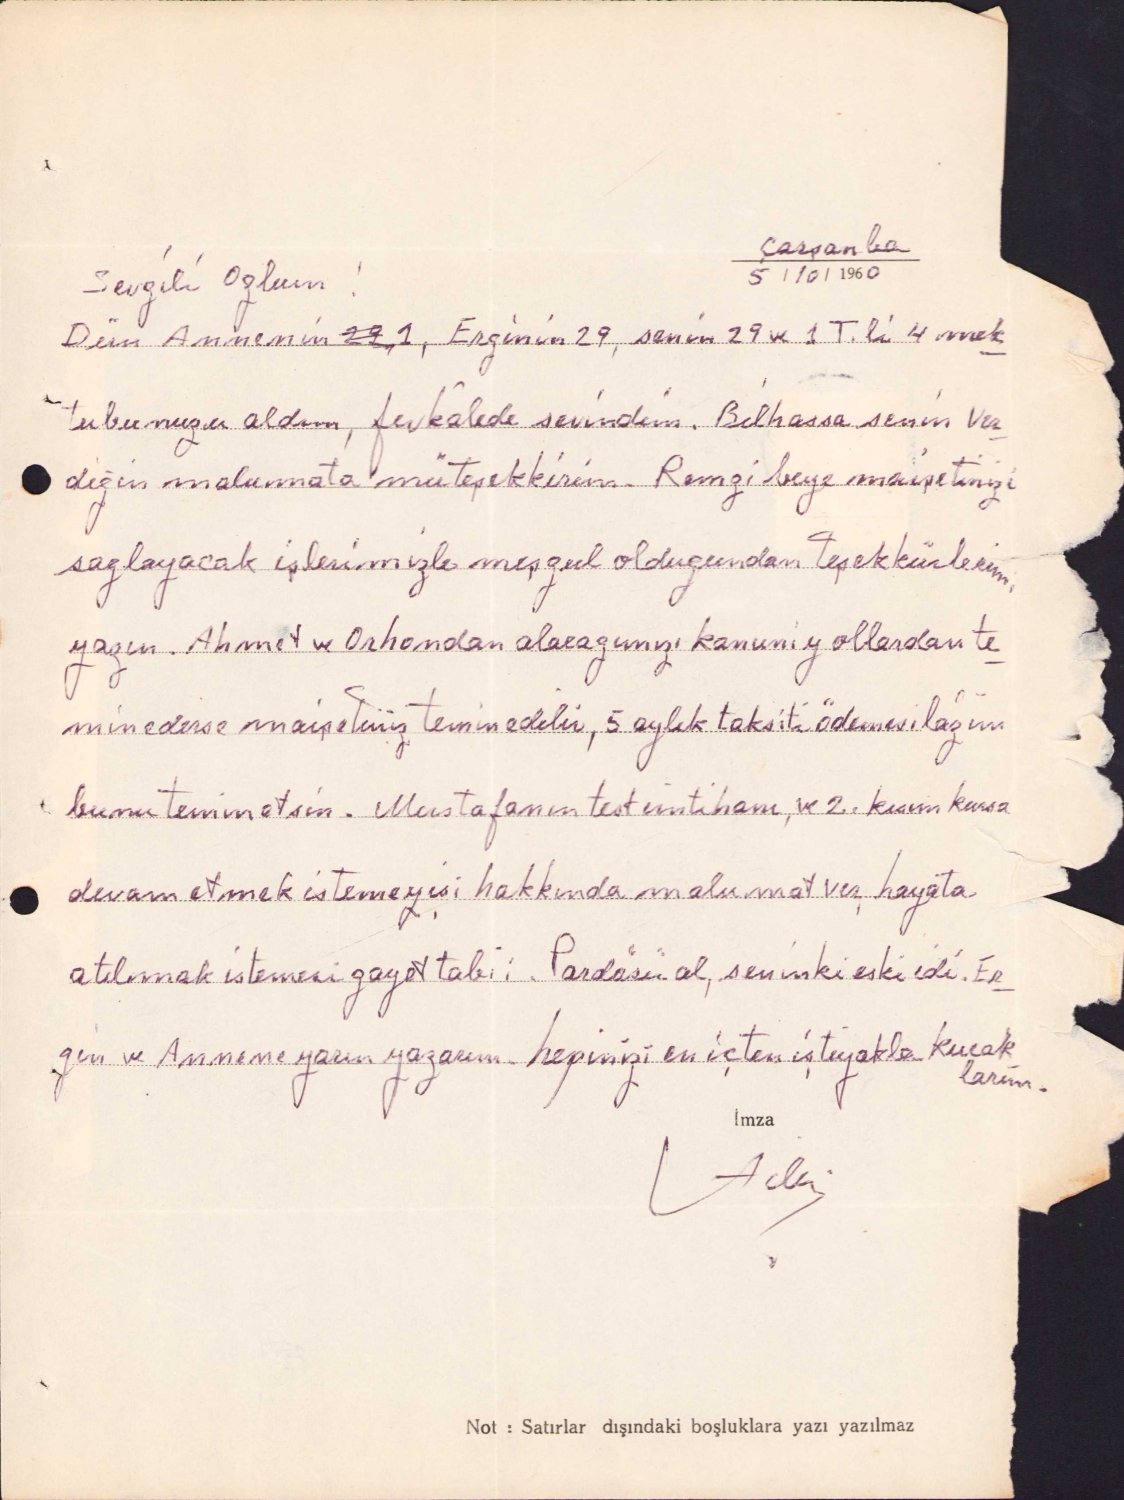 Çarşanba
5 / 10 / 1960
Sevgili Oğlum!
Dün Annenin 29, 1, Erginin 29, senin 29 ve 1 T. li 4 mek
tubunuzu aldım, fevkâlede sevindim. Bilhassa senin Ver
diğin malumata müteşekkirim. Remzi beye maişetinizi
saglayacak işlerimizle meşgul oldugundan Teşekkürlerimi
yazın. Ahmet ve Orhondan alacagımızı kanuni yollardan te
min ederse maişetiniz temin edilir, 5 aylık taksiti ödemesi lâzım
bunu temin etsin. Mustafanın test imtihanı, ve 2. kısım kursa
devam etmek istemeyişi hakkında malumat ver, hayata
atılmak istemesi gayet tabii. Pardösü al, seninki eski idi. Er
gin ve Annene yarın yazarım. hepinizi en içten iştiyakla kucak
larım.
İmza
Not : Satırlar dışındaki boşluklara yazı yazılmaz